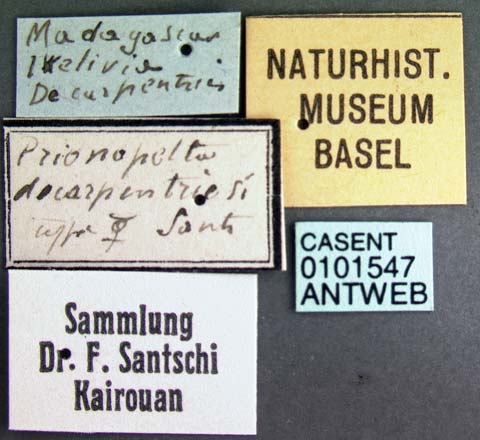 Madagascar
Decarpentries
NATURHIST.
MUSEUM
BASEL
Prionopelta
decarpentriesi
type ☿ Sants
CASENT
0101547
ANTWEB
Sammlung
Dr. F. Santschi
Kairouan